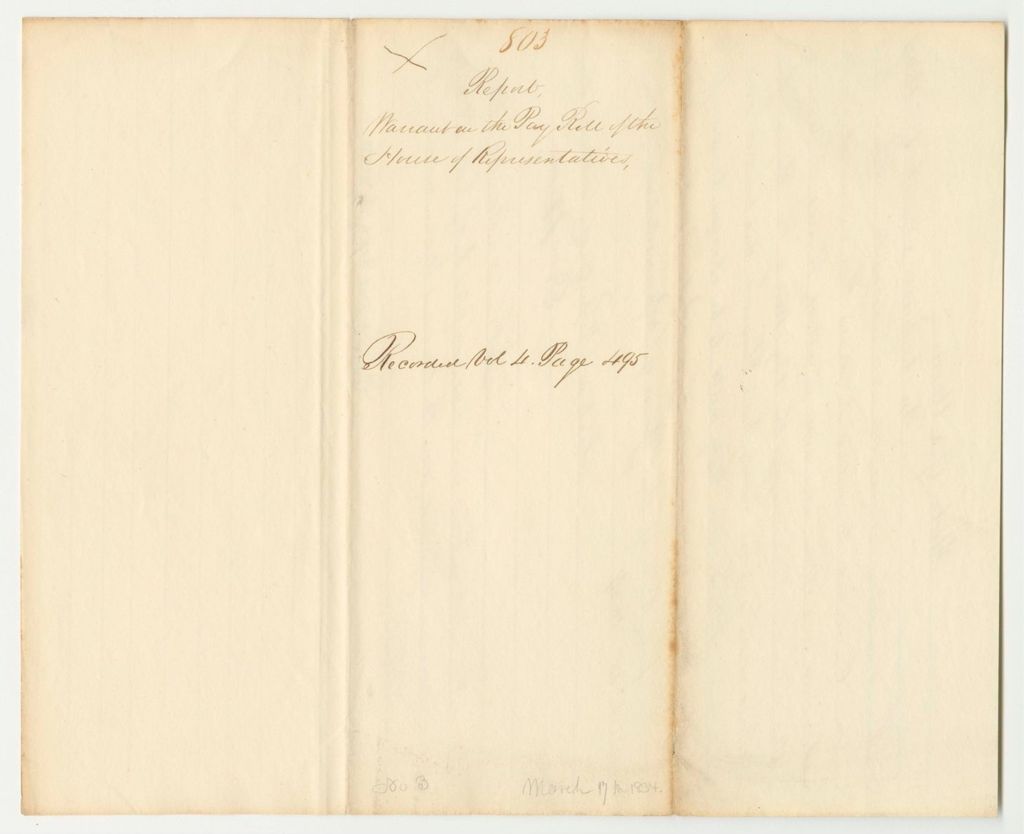 803
Report,
Warrant on the Pay Roll of the
House of Representatives,
Recorded Vol 4. Page 495
No 3
March 17th 1834.